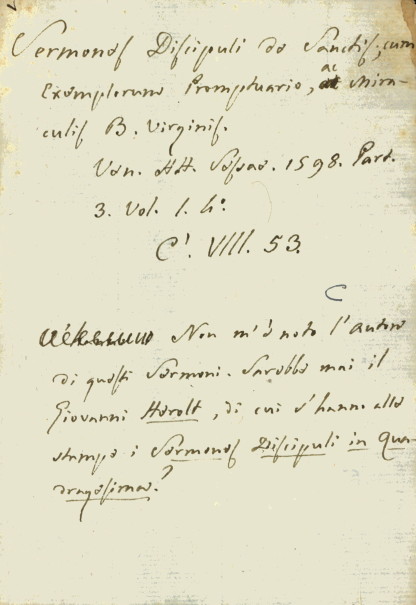 Sermones Discipuli de Sanctis, cum
Exemplorum Promptuario, ac Mira-
culis B. Virginis.
Ven. HH. Sessae. 1598. Part.
3. Vol. 1. 4º.
C'. VIII. 53.
C
Non m'è noto l'autore
di questi Sermoni. Sarebbe mai il
Giovanni Herolt, di cui s'hanno alle
stampe i Sermones Discipuli in Qua-
dragesima?